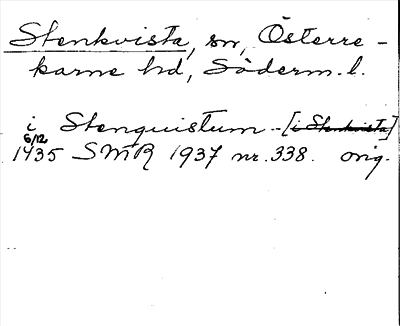 Stenkvista, sn, Österre-
karne hd, Söderm. l.
i Stenquistum - [i Stenkvista]
6/12
1435 SMR 1937 nr. 338. orig.